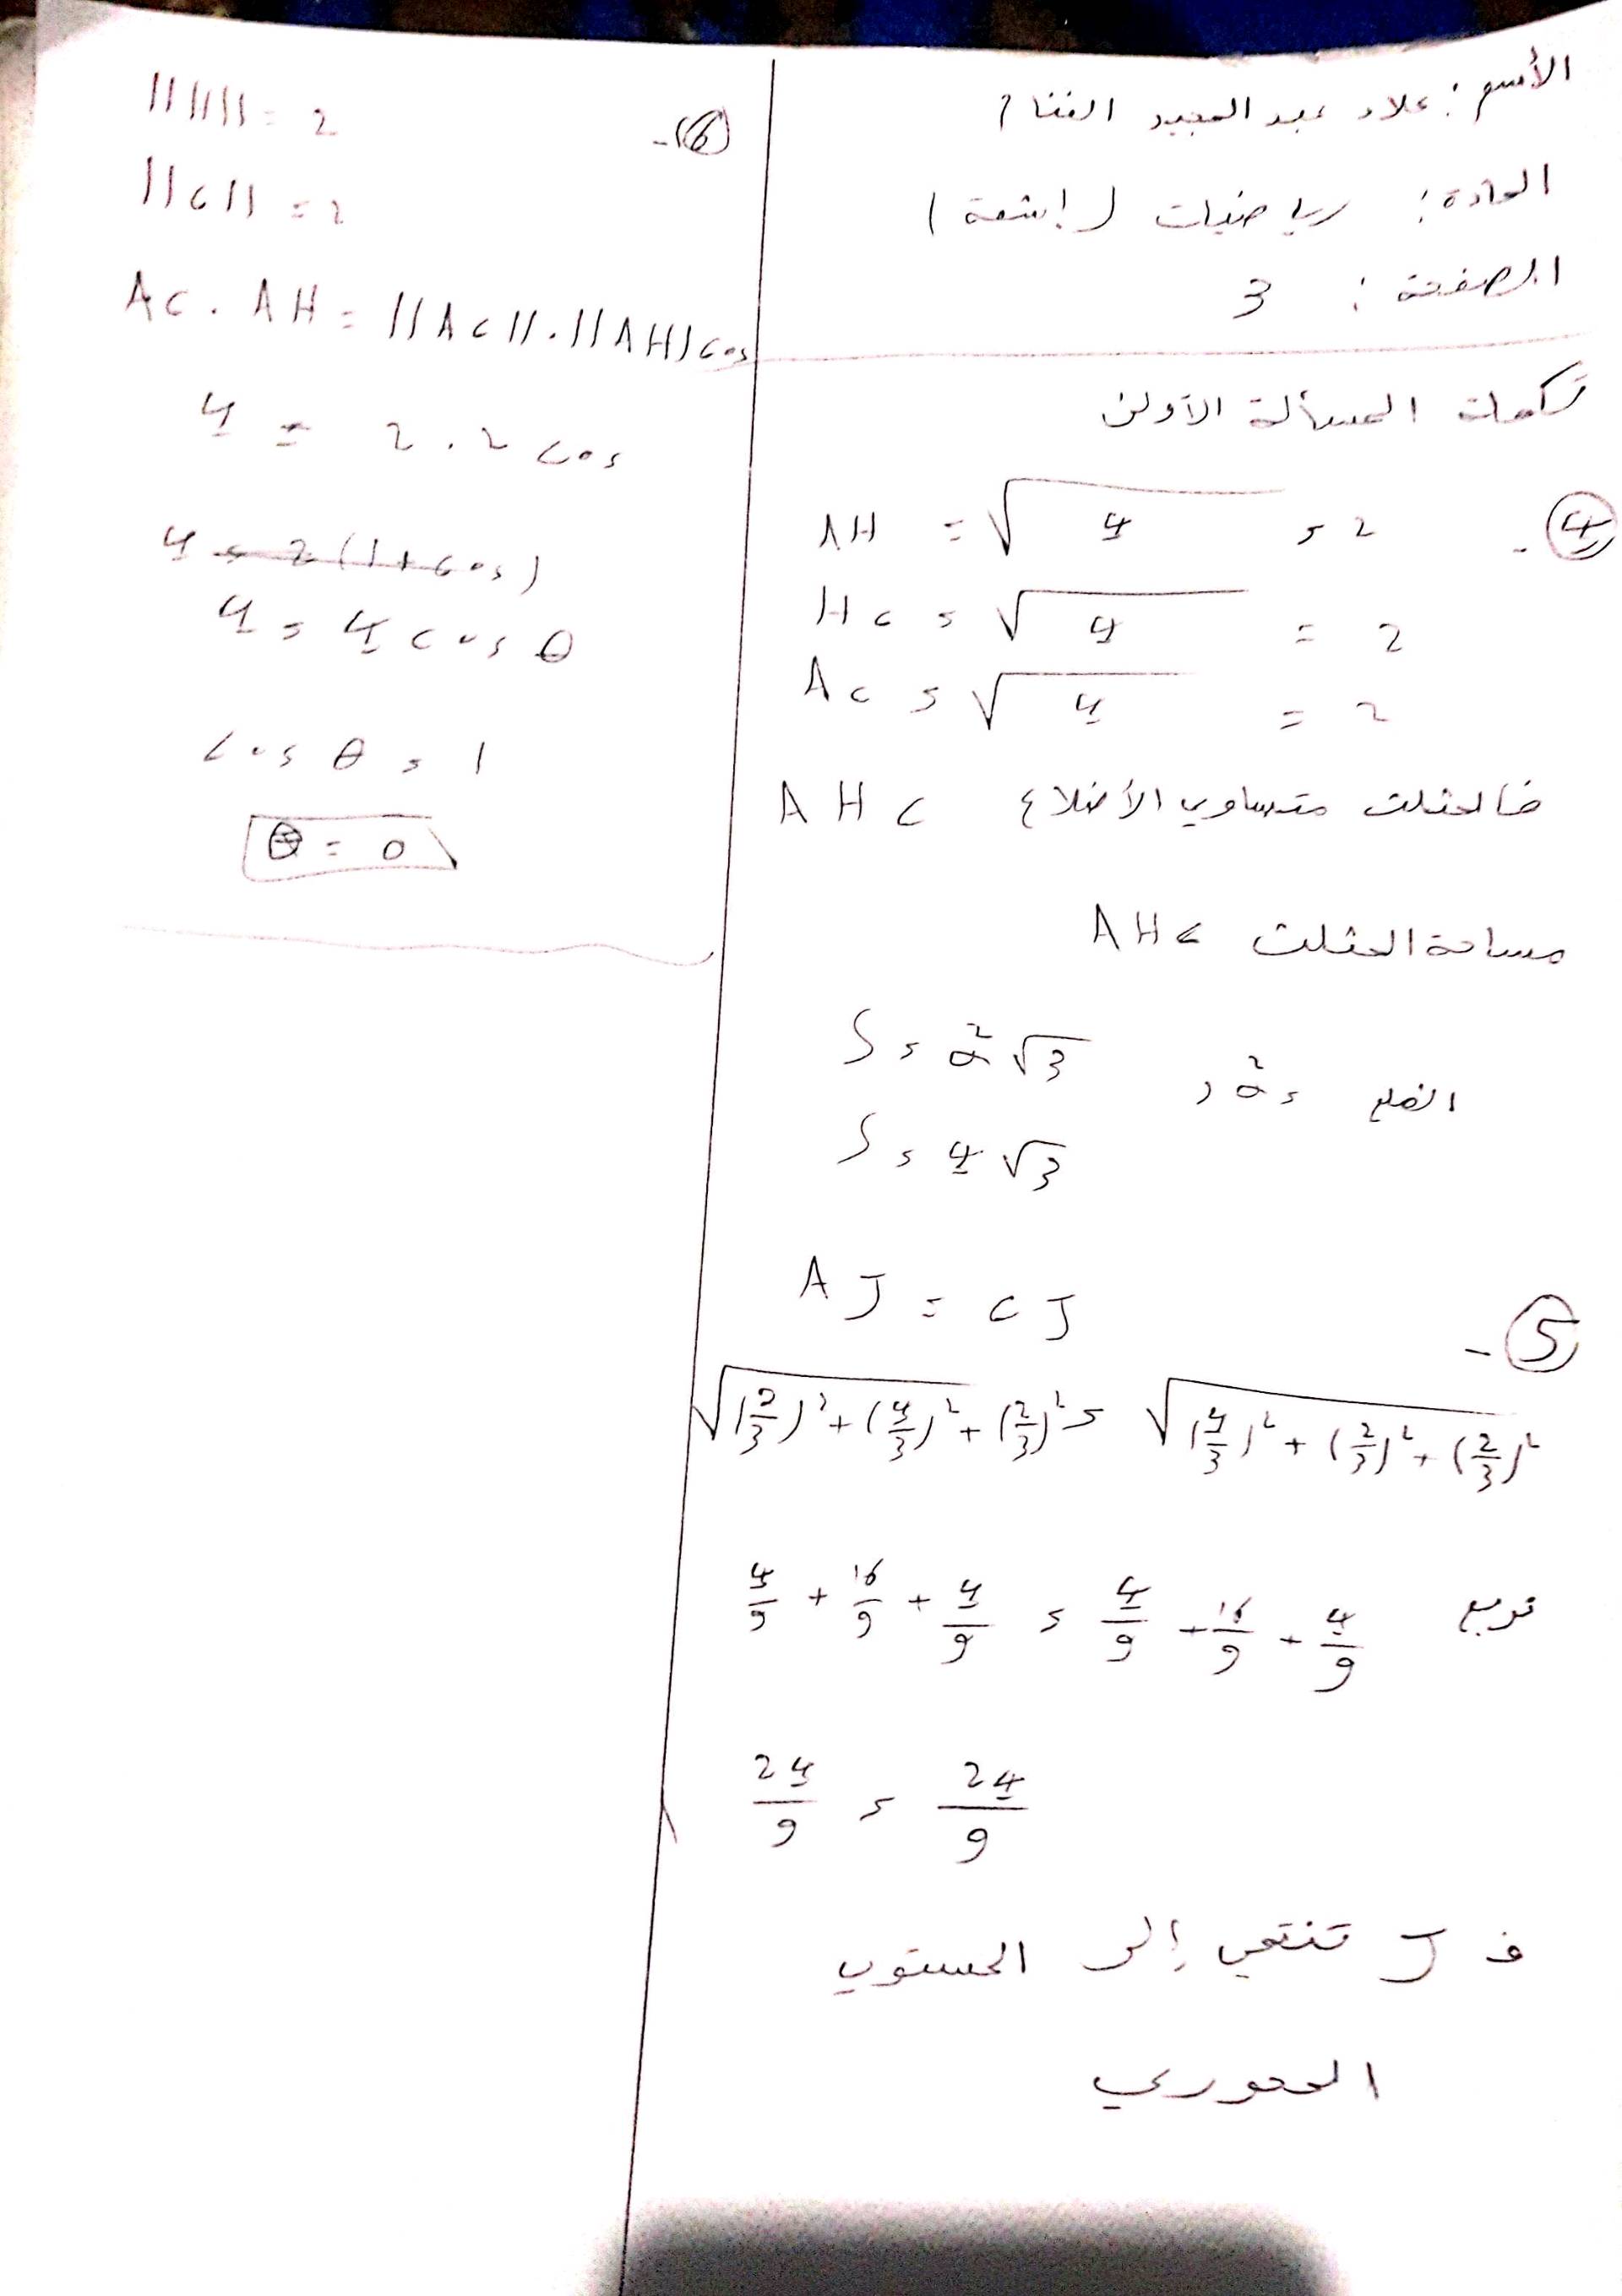 الأسم : علاء عبد المجيد الفتاح
المادة : رياضيات (أشعة)
الصفحة : 3
تكملة المسألة الأولى
④ - AH = √4 = 2
HC = √4 = 2
AC = √4 = 2
فالمثلث متساوي الأضلاع AHC
مساحة المثلث AHC
S = a² √3 , a² = الضلع
S = 4 √3
⑤ - AJ = CJ
√(2/3)² + (4/3)² + (2/3)² = √(4/3)² + (2/3)² + (2/3)²
نربع 4/9 + 16/9 + 4/9 = 4/9 + 16/9 + 4/9
24/9 = 24/9
ف J تنتمي إلى المستوي
المحوري
⑥ -
= 2
||C|| = 2
AC . AH = ||AC|| . ||AH| cos
4 = 2 . 2 cos
4 = 2 (1 + cos)
4 = 4 cos θ
cos θ = 1
θ = 0